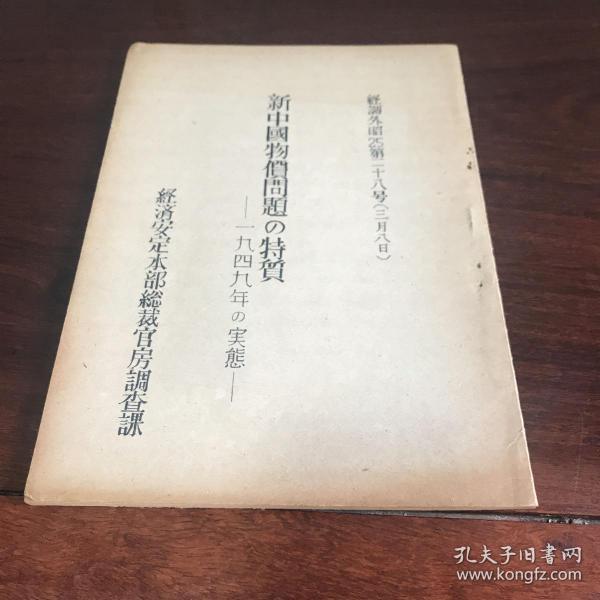 経調外昭25第二十八号(三月八日)
新中國物價問題の特質
——一九四九年の実態——
経済安定本部総裁官房調査課
孔夫子旧书网
www.kongfz.com